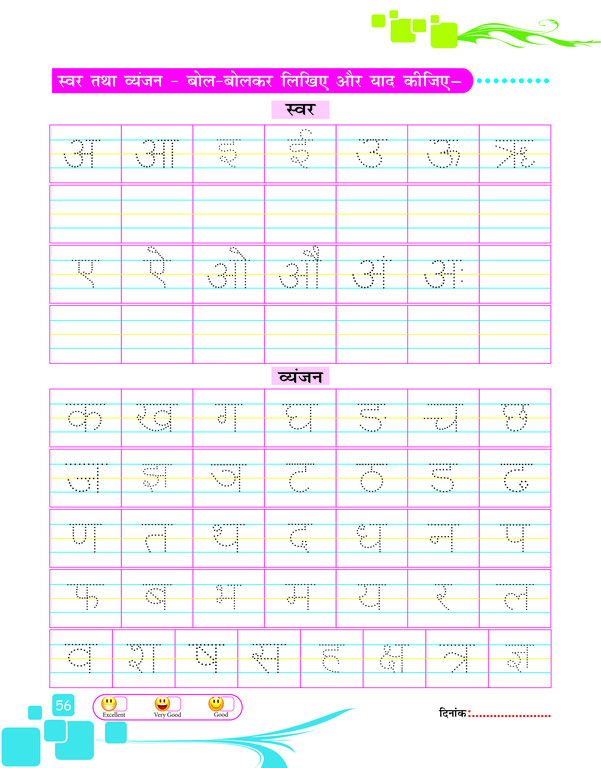 स्वर तथा व्यंजन - बोल-बोलकर लिखिए और याद कीजिए–
स्वर
अ आ इ ई उ ऊ ऋ
ए ऐ ओ औ अं अः
व्यंजन
क ख ग घ ड च छ
ज झ ञ ट ठ ड ढ
ण त थ द ध न प
फ ब भ म य र ल
व श ष स ह क्ष त्र ज्ञ
56
Excellent Very Good Good
दिनांक:.....................